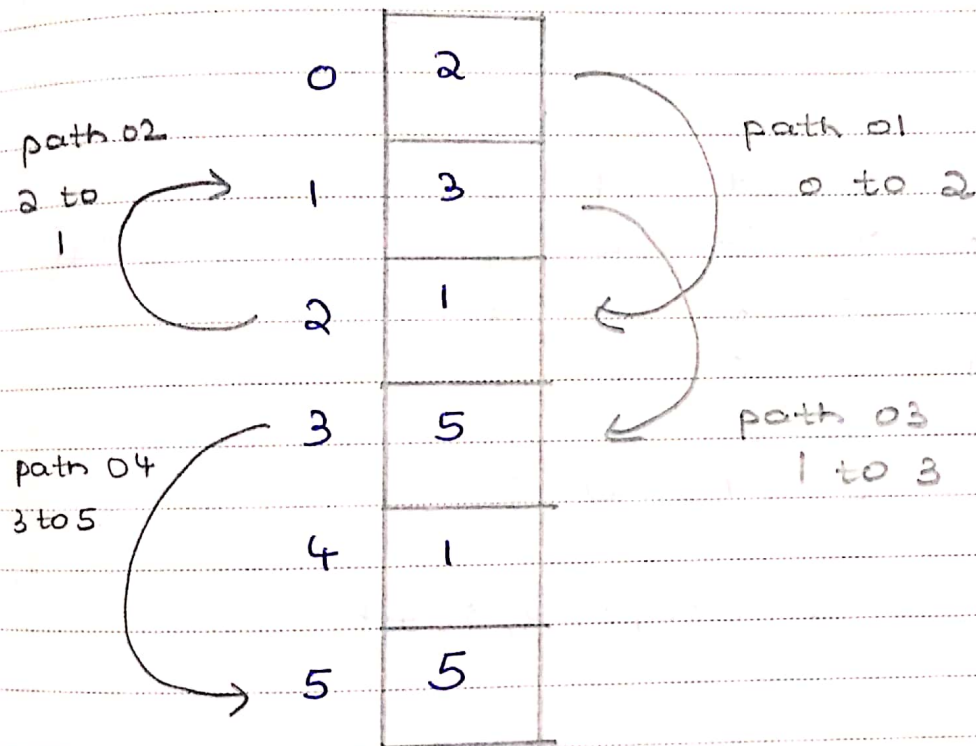 0 2
path 02
2 to
1
path 01
0 to 2
1 3
2 1
3 5
path 03
1 to 3
path 04
3 to 5
4 1
5 5